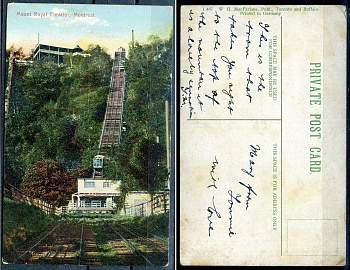 Mount Royal Elevator, Montreal.
W. G. MacFarlane, Publ., Toronto and Buffalo.
Printed in Germany
THIS SPACE MAY BE USED
FOR CORRESPONDENCE
This is the
tram that
takes you right
to the top of
the mountain it
is a lovely
PRIVATE POST CARD.
THIS SPACE IS FOR ADDRESS ONLY
Mary from
Tommie
with love